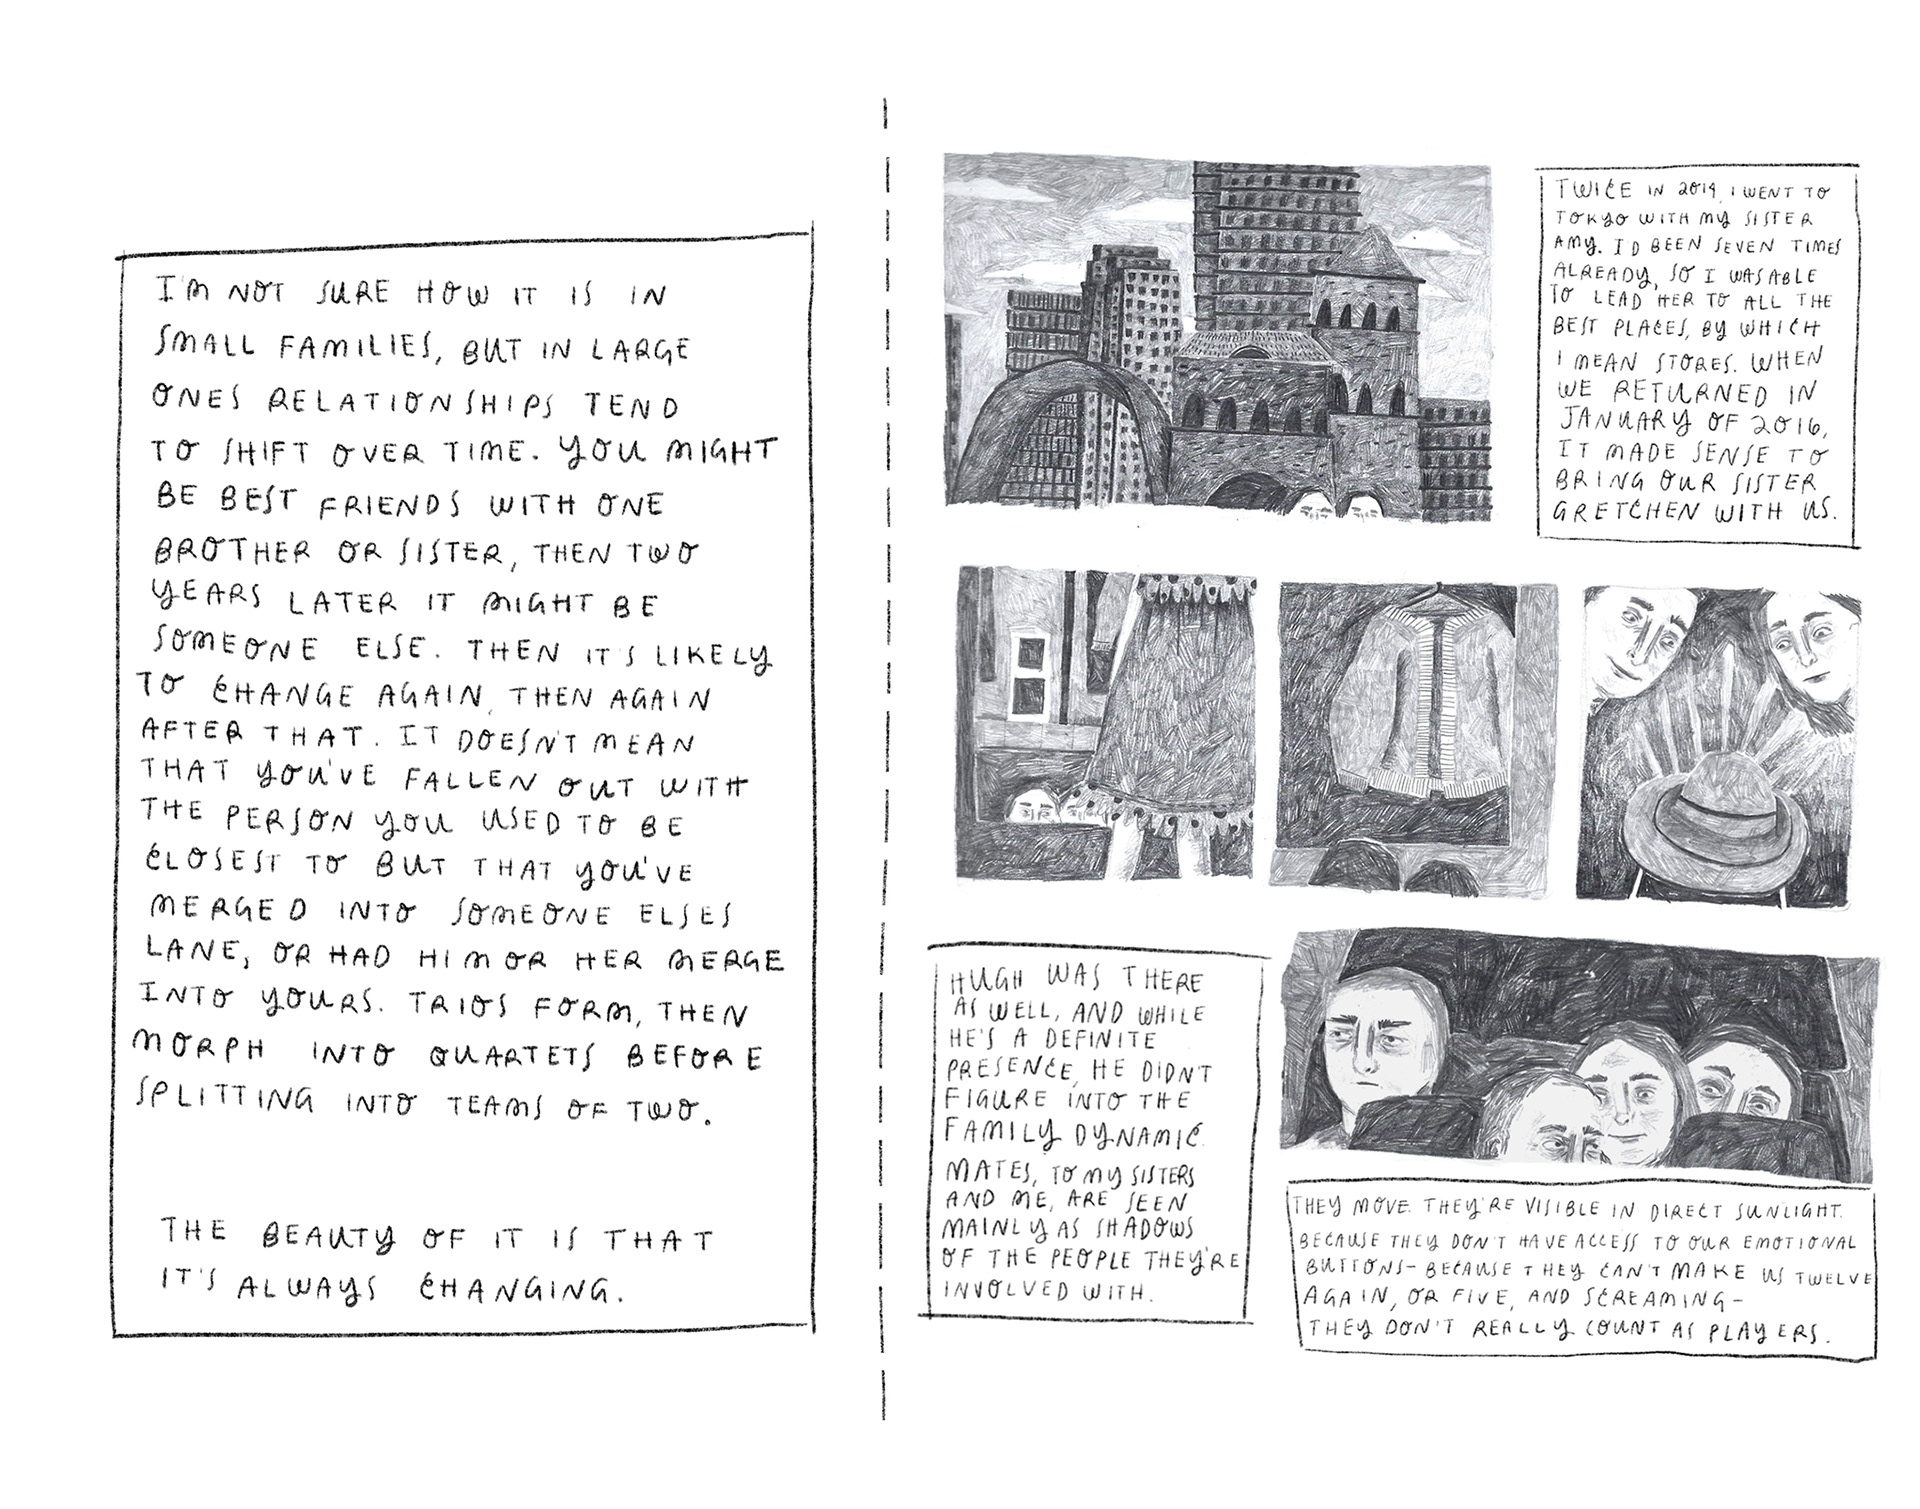 I'M NOT SURE HOW IT IS IN
SMALL FAMILIES, BUT IN LARGE
ONES RELATIONSHIPS TEND
TO SHIFT OVER TIME. YOU MIGHT
BE BEST FRIENDS WITH ONE
BROTHER OR SISTER, THEN TWO
YEARS LATER IT MIGHT BE
SOMEONE ELSE. THEN IT'S LIKELY
TO CHANGE AGAIN, THEN AGAIN
AFTER THAT. IT DOESN'T MEAN
THAT YOU'VE FALLEN OUT WITH
THE PERSON YOU USED TO BE
CLOSEST TO BUT THAT YOU'VE
MERGED INTO SOMEONE ELSES
LANE, OR HAD HIM OR HER MERGE
INTO YOURS. TRIOS FORM, THEN
MORPH INTO QUARTETS BEFORE
SPLITTING INTO TEAMS OF TWO.
THE BEAUTY OF IT IS THAT
IT'S ALWAYS CHANGING.
TWICE IN 2014, I WENT TO
TOKYO WITH MY SISTER
AMY. I'D BEEN SEVEN TIMES
ALREADY, SO I WAS ABLE
TO LEAD HER TO ALL THE
BEST PLACES, BY WHICH
I MEAN STORES. WHEN
WE RETURNED IN
JANUARY OF 2016,
IT MADE SENSE TO
BRING OUR SISTER
GRETCHEN WITH US.
HUGH WAS THERE
AS WELL, AND WHILE
HE'S A DEFINITE
PRESENCE, HE DIDN'T
FIGURE INTO THE
FAMILY DYNAMIC.
MATES, TO MY SISTERS
AND ME, ARE SEEN
MAINLY AS SHADOWS
OF THE PEOPLE THEY'RE
INVOLVED WITH.
THEY MOVE. THEY'RE VISIBLE IN DIRECT SUNLIGHT.
BECAUSE THEY DON'T HAVE ACCESS TO OUR EMOTIONAL
BUTTONS- BECAUSE THEY CAN'T MAKE US TWELVE
AGAIN, OR FIVE, AND SCREAMING-
THEY DON'T REALLY COUNT AS PLAYERS.